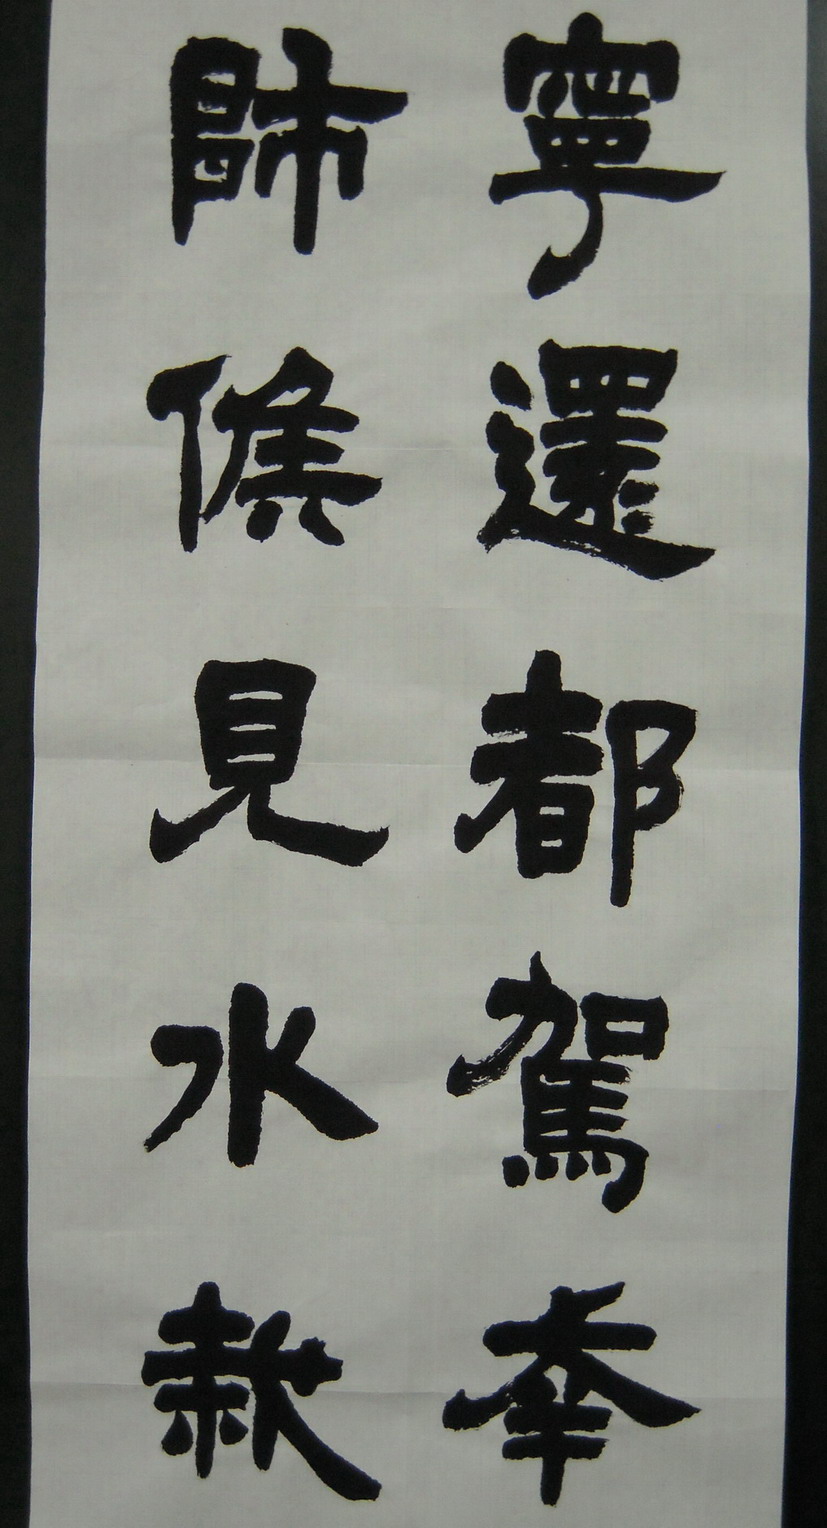 寧還都駕奉
師候見水栽